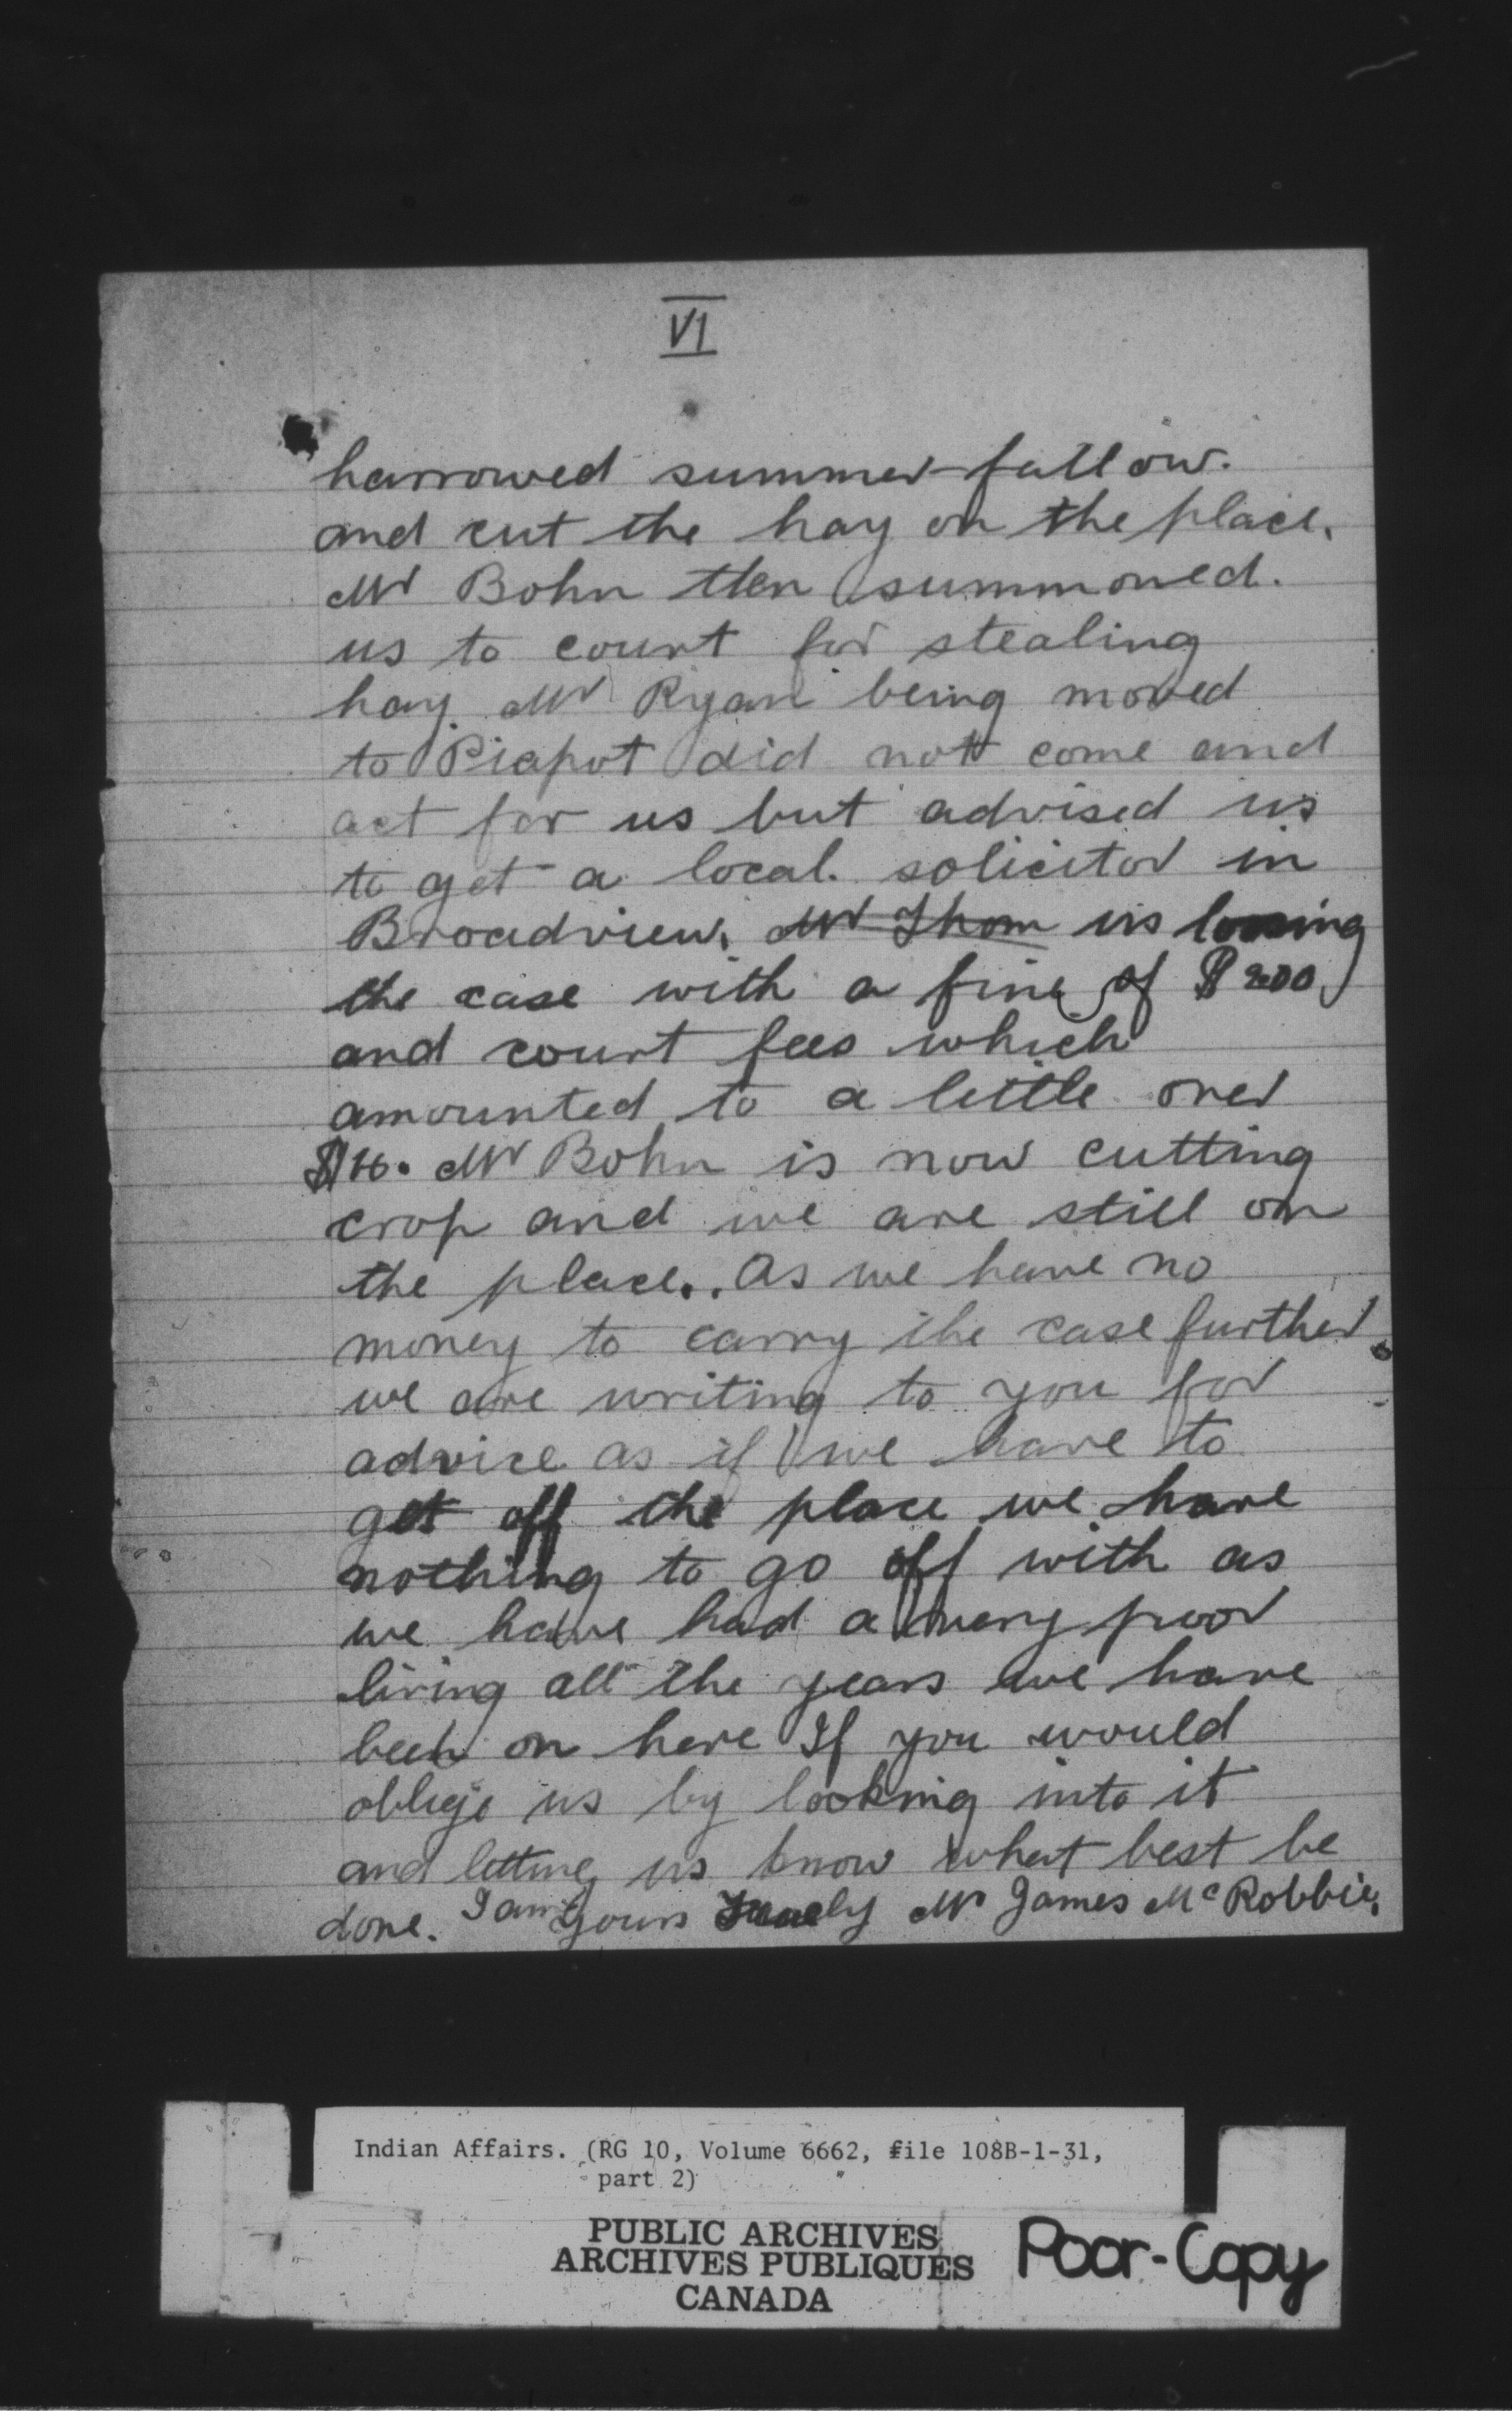 VI
harrowed summer-fallow.
and cut the hay on the place.
Mr Bohn then summoned.
us to court for stealing
hay. Mr Ryan being moved
to Piapot did not come and
act for us but advised us
to get a local. solicitor in
Broadview. Mr Thom us loosing
the case with a fine of $200
and court fees which
amounted to a little over
$16. Mr Bohn is now cutting
crop and we are still on
the place.. As we have no
money to carry the case further.
we are writing to you for
advice as if we have to
get off the place we have
nothing to go off with as
we have had a very poor
living all the years we have
been on here If you would
oblige us by looking into it
and letting us know what best be
done. I am Yours Mr James McRobbie.
Indian Affairs. (RG 10, Volume 6662, file 108B-1-31,
part 2)
PUBLIC ARCHIVES
ARCHIVES PUBLIQUES
CANADA
Poor-Copy